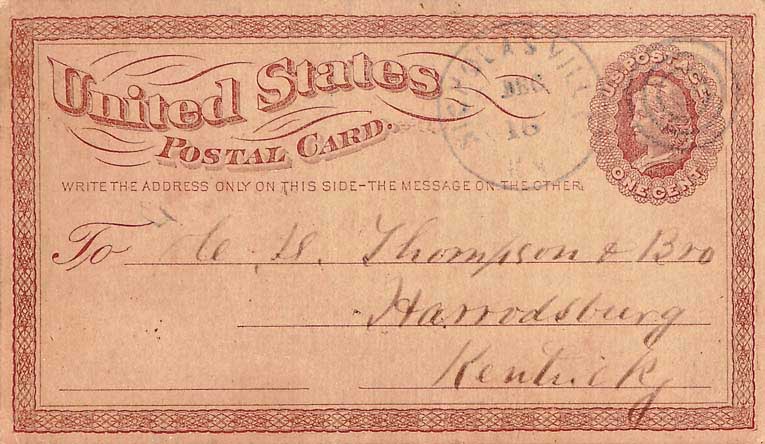 United States
POSTAL CARD.
NICHOLASVILLE
DEC
18
KY
U.S. POSTAGE
ONE CENT
WRITE THE ADDRESS ONLY ON THIS SIDE-THE MESSAGE ON THE OTHER.
To C. D. Thompson & Bro
Harrodsburg
Kentucky